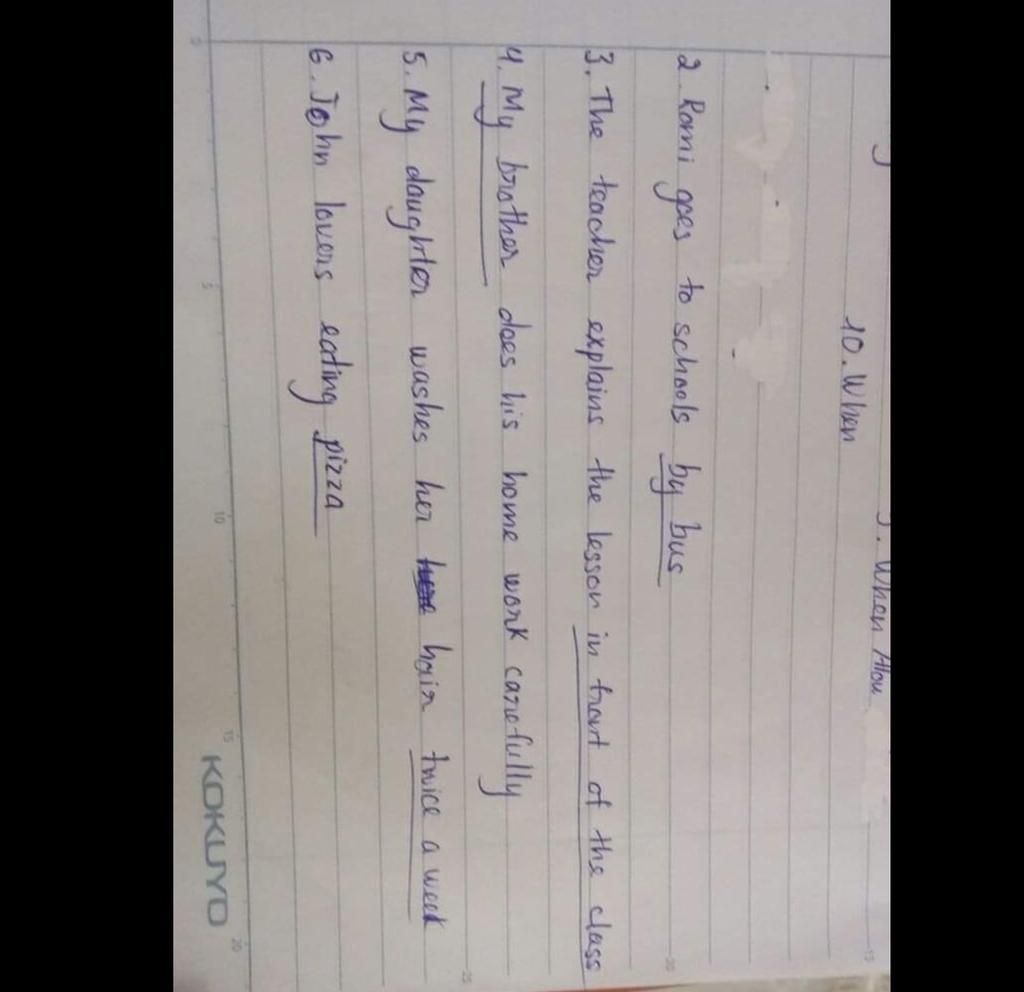 J. When How
10. When
2. Romi goes to schools by bus
3. The teacher explains the lesson in front of the class
4. My brother does his home work carefully
5. My daughter washes her hair twice a week
6. John lovers eating pizza
0 5 10 15 20
15 20 25
KOKUYO